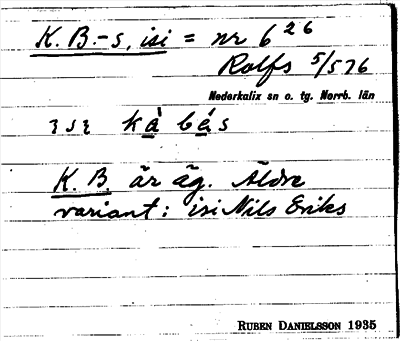 K. B.-s, isi = nr 6 26
Rolfs 5/576
Nederkalix sn o. tg. Norrb. län
ısı kà bá s
K. B. är äg. Äldre
variant: isi Nils Eriks
RUBEN DANIELSSON 1935